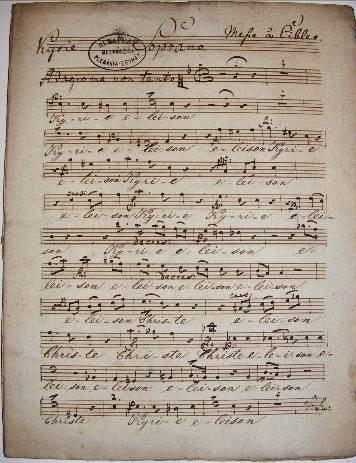 Kyrie Soprano Messa a Eibler.
Adagio ma non tanto
Ky-ri-e e-leison
Kyrie e-leison Kyri-e
e-lei-son Kyri-e e-lei-son
e-leison Kyri-e Kyri-e e-lei-
son Kyri-e eleison e-
leison e-leison e-leison e-leison
e-leison Chris-te e-leison
Chris-te Chri-ste Christe e-lei-son e-
lei-son e-leison e-leison e-leison
Christe Kyri-e eleison